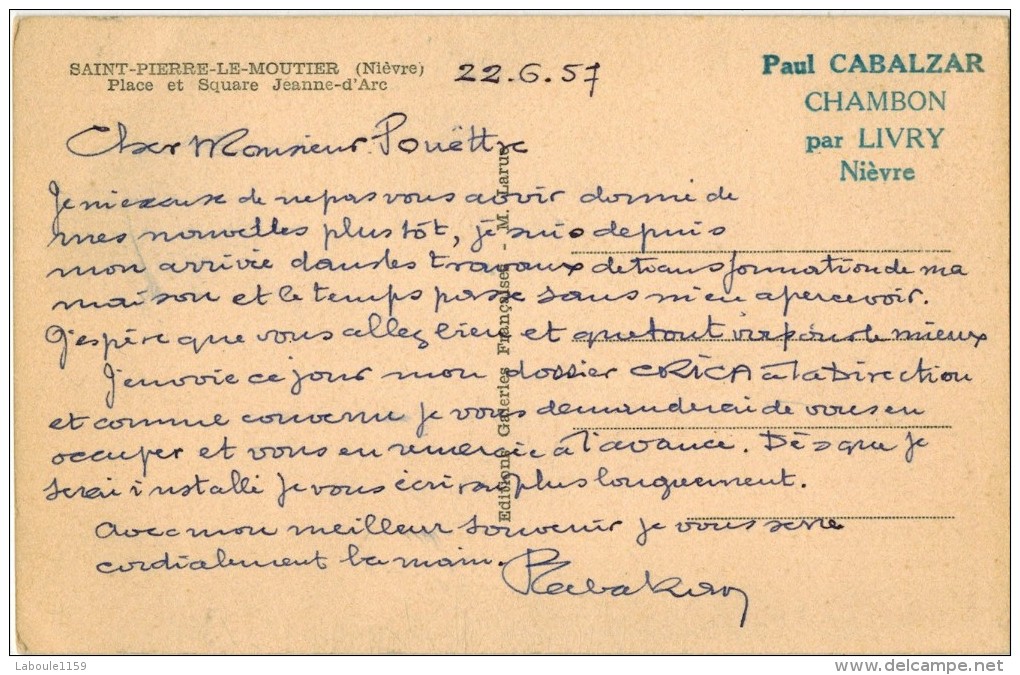 SAINT-PIERRE-LE-MOUTIER (Nièvre)
Place et Square Jeanne-d'Arc
22.6.57
Paul CABALZAR
CHAMBON
par LIVRY
Nièvre
Cher Monsieur Pouëttre
Je m'excuse de ne pas vous avoir donné de
mes nouvelles plus tôt, je suis depuis
mon arrivée dans les travaux de transformation de ma
maison et le temps passe sans m'en apercevoir.
J'espère que vous allez bien et que tout va pour le mieux
J'envoie ce jour mon dossier CRICA à la Direction
et comme convenu je vous demanderai de vous en
occuper et vous en remercie à l'avance. Dès que je
serai installé je vous écrirai plus longuement.
Avec mon meilleur souvenir je vous serre
cordialement la main.
Editions Galeries Françaises - M. Larue
Laboule1159
delcampe.net